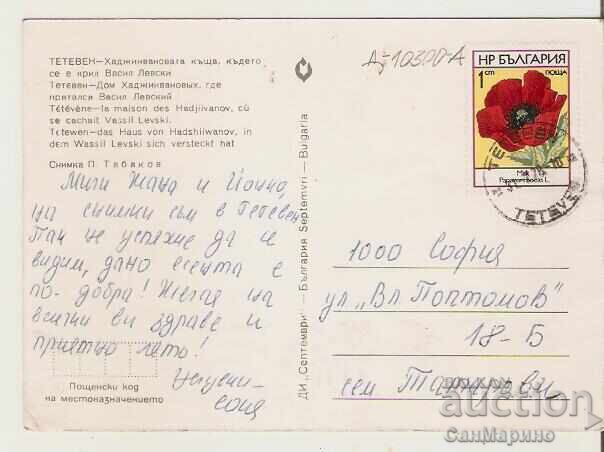 ТЕТЕВЕН—Хаджиивановата къща, където
се е крил Васил Левски
Тетевен—Дом Хаджиивановых, где
прятался Васил Левский
Tétévène—la maison des Hadjiivanov, où
se cachait Vassil Levski.
Tetewen—das Haus von Hadshiiwanov, in
dem Wassil Levski sich versteckt hat
Снимка П. Табаков
Мили Жана и Йонко,
на снимки съм в Тетевен
Пак не успяхме да се
видим, дано есента е
по-добра! Желая на
всички ви здраве и
приятно лято!
Целувки—
соня
Пощенски код
на местоназначението
ДИ „Септември" — България Septemvri — Bulgaria
А-10300-А
НР БЪЛГАРИЯ
1 ст ПОЩА
Мак
Papaver rhoeas L.
ТЕТЕВЕН
1000 София
ул „Вл Поптомов"
18-Б
сем
auction
СанМарино